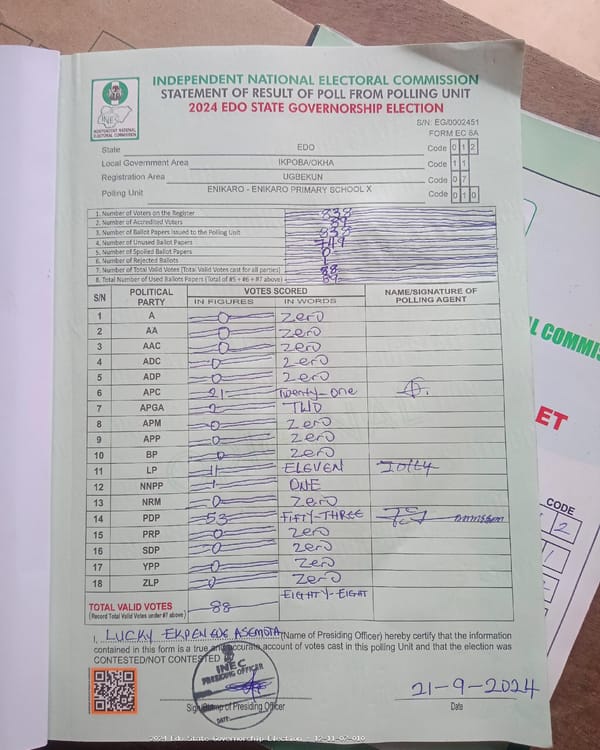 INDEPENDENT NATIONAL ELECTORAL COMMISSION
STATEMENT OF RESULT OF POLL FROM POLLING UNIT
2024 EDO STATE GOVERNORSHIP ELECTION
INEC
INDEPENDENT NATIONAL ELECTORAL COMMISSION
S/N: EG/0002451
FORM EC 8A
State EDO Code 0 1 2
Local Government Area IKPOBA/OKHA Code 1 1
Registration Area UGBEKUN Code 0 7
Polling Unit ENIKARO - ENIKARO PRIMARY SCHOOL X Code 0 1 0
1. Number of Voters on the Register 838
2. Number of Accredited Voters 89
3. Number of Ballot Papers Issued to the Polling Unit 838
4. Number of Unused Ballot Papers 749
5. Number of Spoiled Ballot Papers 0
6. Number of Rejected Ballots 1
7. Number of Total Valid Votes (Total Valid Votes cast for all parties) 88
8. Total Number of Used Ballots Papers (Total of #5 + #6 + #7 above) 89
S/N POLITICAL PARTY VOTES SCORED NAME/SIGNATURE OF POLLING AGENT
IN FIGURES IN WORDS
1 A 0 Zero
2 AA 0 Zero
3 AAC 0 Zero
4 ADC 0 Zero
5 ADP 0 Zero
6 APC 21 Twenty-One
7 APGA 2 TWO
8 APM 0 Zero
9 APP 0 Zero
10 BP 0 Zero
11 LP 11 ELEVEN
12 NNPP 1 ONE
13 NRM 0 Zero
14 PDP 53 FIFTY-THREE
15 PRP 0 Zero
16 SDP 0 Zero
17 YPP 0 Zero
18 ZLP 0 Zero
TOTAL VALID VOTES 88 EIGHTY-EIGHT
(Record Total Valid Votes under #7 above)
I, LUCKY EKPENEDE ASEMOTA (Name of Presiding Officer) hereby certify that the information
contained in this form is a true and accurate account of votes cast in this polling Unit and that the election was
CONTESTED/NOT CONTESTED
INEC
PRESIDING OFFICER
DATE:
21-9-2024
Sign/Stamp of Presiding Officer Date
2024 Edo State Governorship Election - 12-11-07-010
L COMMISS
ET
CODE
2